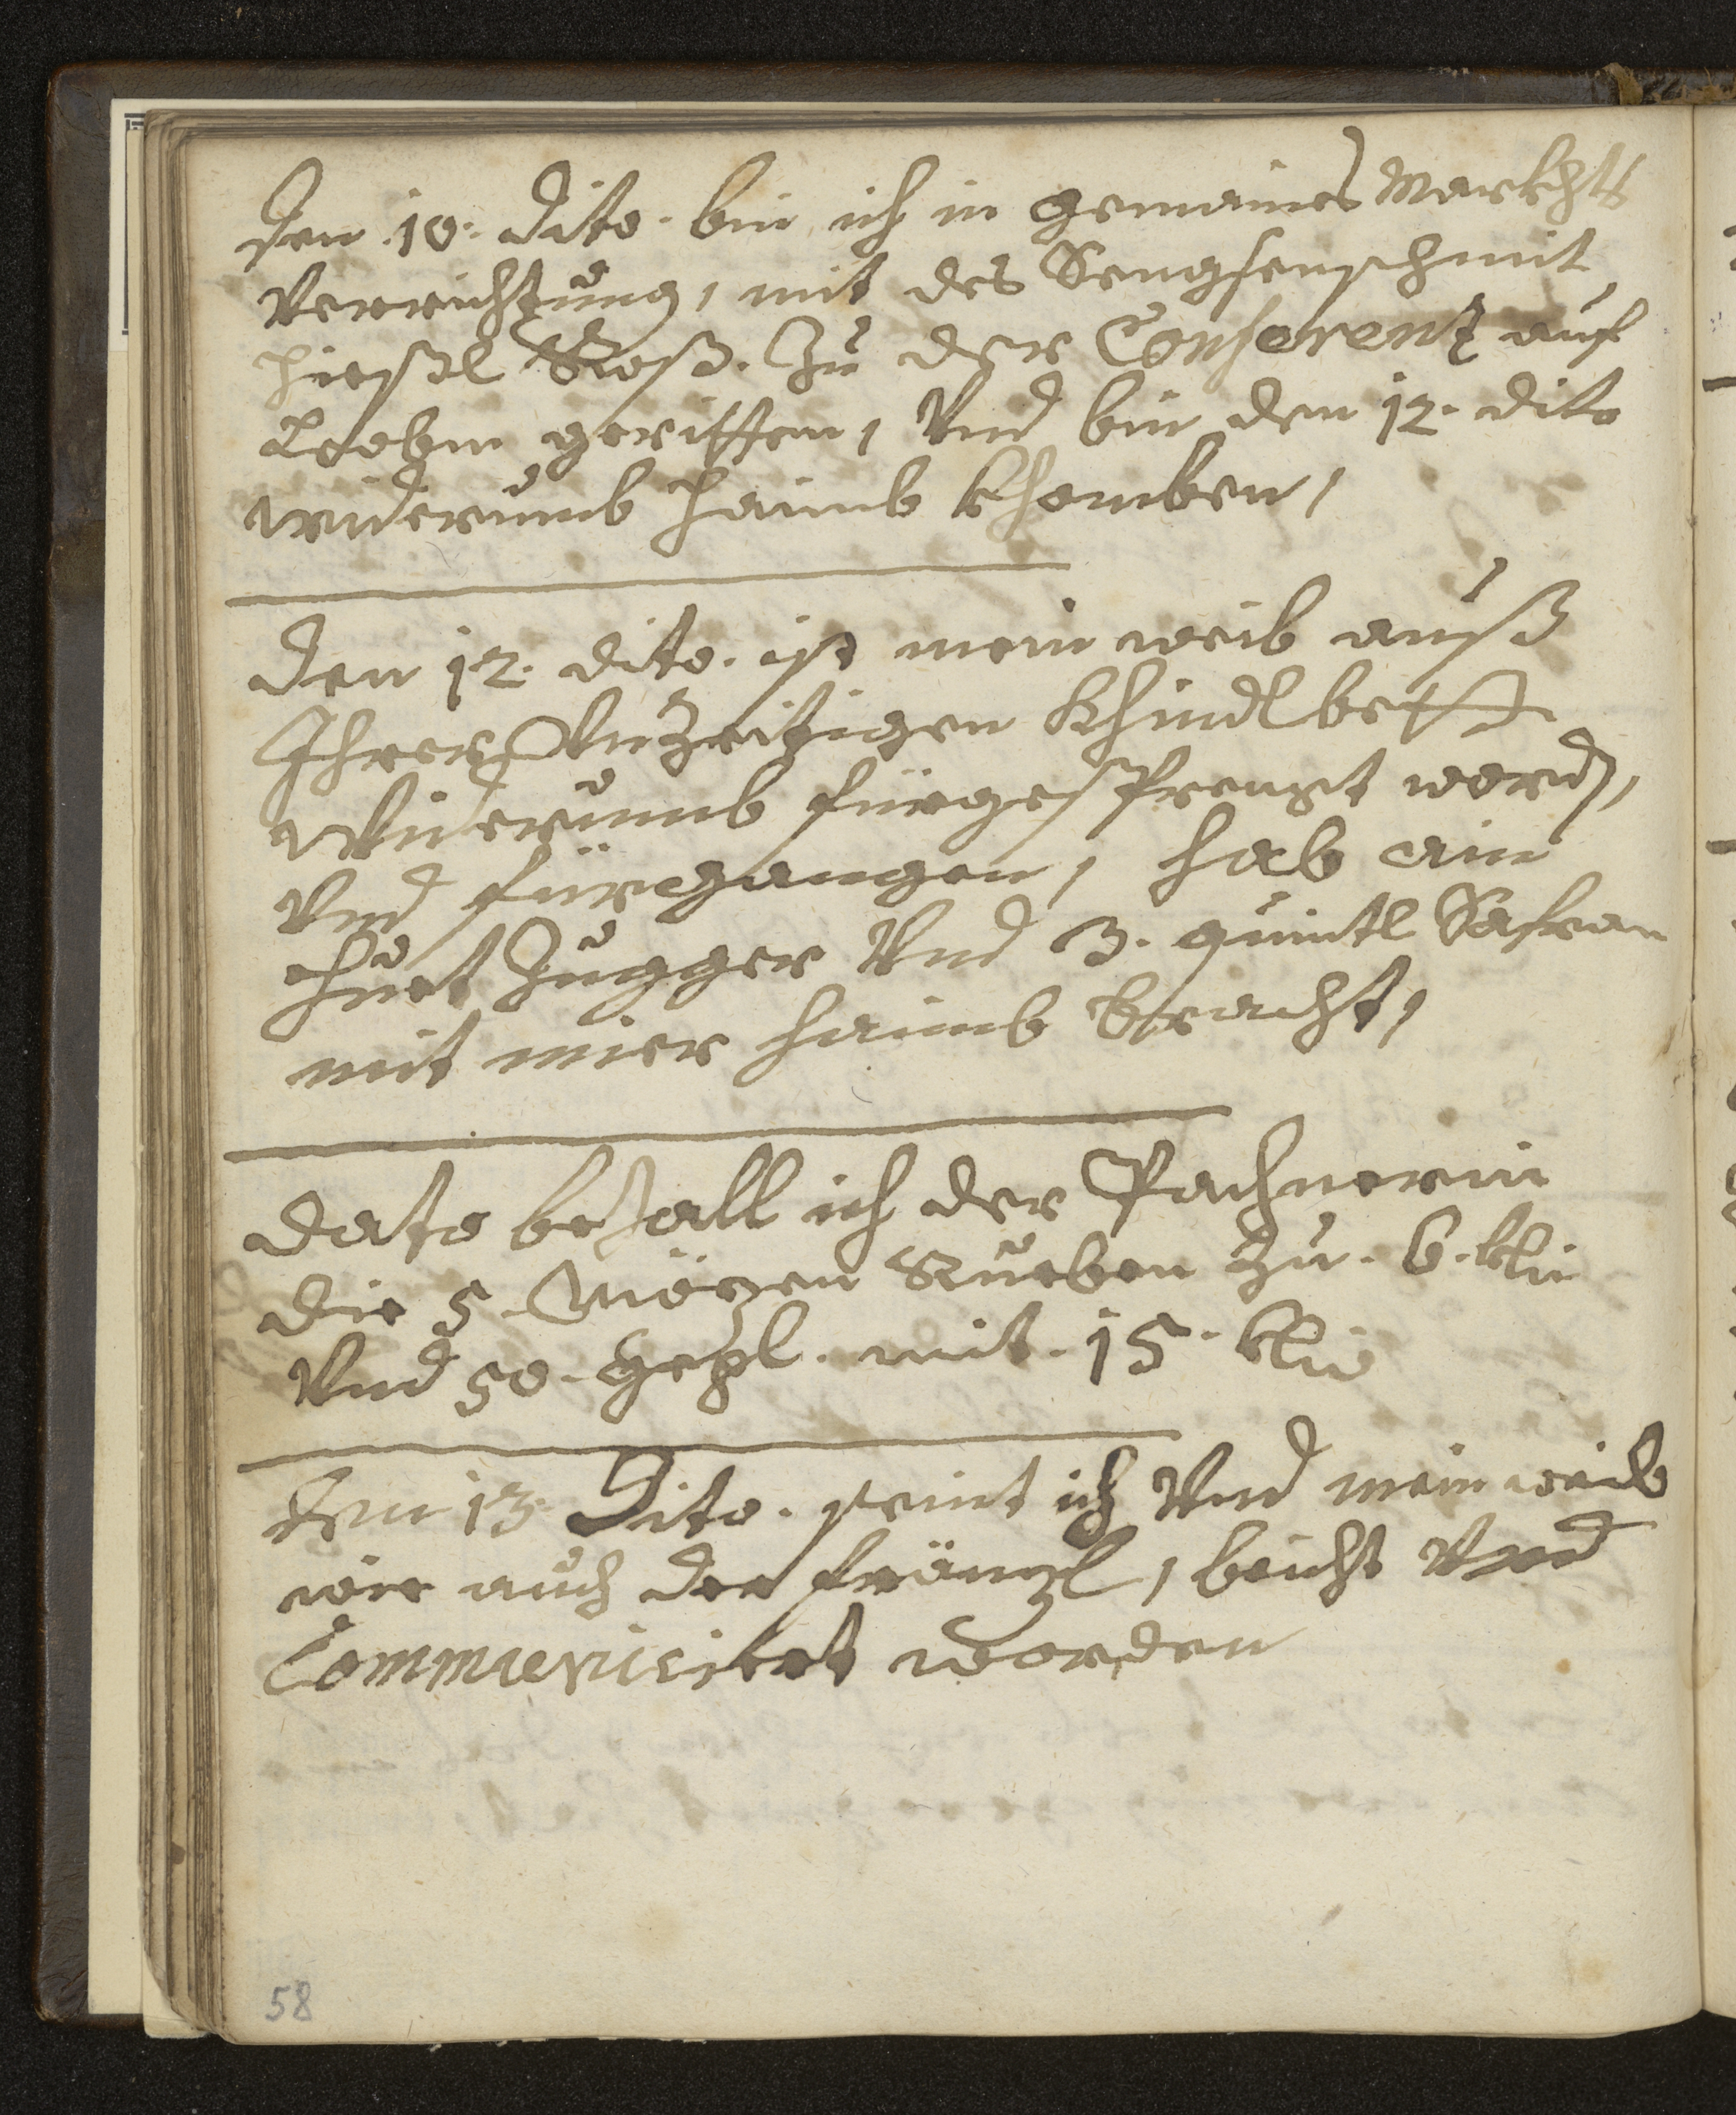 Den .10. dito. bin ich in gemaines Markhts
Verrichtung, mit des Sengsenschmit
Hießl Roß. Zu der Conferentz auf
Leobm geritten, Vnd bin den 12. dito
widerumb haimb khomben,
Den 12. dito. ist mein weib auß
Ihrer Vnzeitigen Khindlbett
Widerumb fürgesprengt word,
Vnd fürgangen, hab ain
Huet Zugger Vnd 3. quintl Safran
mit mier haimb bracht,
Dato bezall ich der Pachnerin
die 5. Mözen Rueben Zu. 6.
Vnd 50. mit. 15.
Den 13. Dito. seint ich Vnd mein weib
wie auch der fränzl, beicht Vnd
Communicirt worden
58